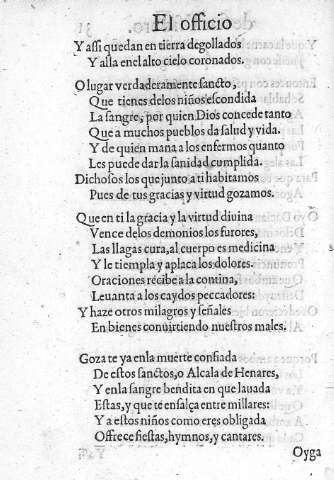 El officio
Y assi quedan en tierra degollados
Y alla enel alto cielo coronados.
O lugar verdaderamente sancto,
Que tienes delos niños escondida
La sangre, por quien Dios concede tanto
Que a muchos pueblos da salud y vida.
Y de quien mana a los enfermos quanto
Les puede dar la sanidad cumplida.
Dichosos los que junto a ti habitamos
Pues de tus gracias y virtud gozamos.
Que en ti la gracia y la virtud diuina
Vence delos demonios los furores,
Las llagas cura, al cuerpo es medicina
Y le tiempla y aplaca los dolores.
Oraciones recibe a la contina,
Leuanta a los caydos peccadores:
Y haze otros milagros y señales
En bienes conuirtiendo nuestros males.
Goza te ya enla muerte confiada
De estos sanctos, o Alcala de Henares,
Y enla sangre bendita en que lauada
Estas, y que te ensalça entre millares:
Y a estos niños como eres obligada
Offrece fiestas, hymnos, y cantares.
Oyga